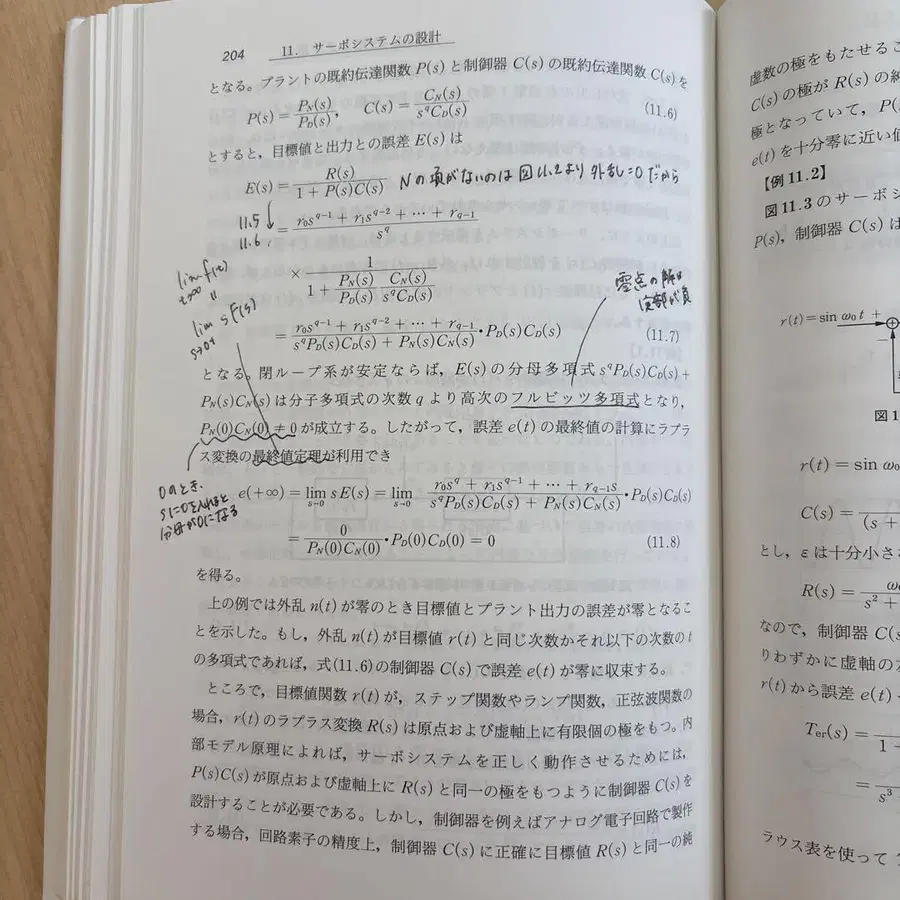 204 11. サーボシステムの設計
となる。プラントの既約伝達関数 P(s) と制御器 C(s) の既約伝達関数 C(s) を
P(s) = P_N(s)/P_D(s), C(s) = C_N(s)/(s^q C_D(s)) (11.6)
とすると,目標値と出力との誤差 E(s) は
E(s) = R(s)/(1 + P(s)C(s)) Nの項がないのは 図11.2より 外乱=0だから
11.5
11.6
= (r₀s^{q-1} + r₁s^{q-2} + ⋯ + r_{q-1})/s^q
× 1/(1 + (P_N(s)/P_D(s)) (C_N(s)/(s^q C_D(s))))
lim f(t)
t→∞ 〃
lim s F(s)
s→0+
零点の
実部が負
= (r₀s^{q-1} + r₁s^{q-2} + ⋯ + r_{q-1})/(s^q P_D(s)C_D(s) + P_N(s)C_N(s)) • P_D(s)C_D(s) (11.7)
となる。閉ループ系が安定ならば,E(s) の分母多項式 s^q P_D(s)C_D(s) +
P_N(s)C_N(s) は分子多項式の次数 q より高次のフルビッツ多項式となり,
P_N(0)C_N(0) ≠ 0 が成立する。したがって,誤差 e(t) の最終値の計算にラプラ
ス変換の最終値定理が利用でき
0のとき、
sに0を入れると
分母が0になる
e(+∞) = lim_{s→0} sE(s) = lim_{s→0} (r₀s^q + r₁s^{q-1} + ⋯ + r_{q-1}s)/(s^q P_D(s)C_D(s) + P_N(s)C_N(s)) • P_D(s)C_D(s)
= 0/(P_N(0)C_N(0)) • P_D(0)C_D(0) = 0 (11.8)
を得る。
上の例では外乱 n(t) が零のとき目標値とプラント出力の誤差が零となるこ
とを示した。もし,外乱 n(t) が目標値 r(t) と同じ次数かそれ以下の次数の t
の多項式であれば,式(11.6)の制御器 C(s) で誤差 e(t) が零に収束する。
ところで,目標値関数 r(t) が,ステップ関数やランプ関数,正弦波関数の
場合,r(t) のラプラス変換 R(s) は原点および虚軸上に有限個の極をもつ。内
部モデル原理によれば,サーボシステムを正しく動作させるためには,
P(s)C(s) が原点および虚軸上に R(s) と同一の極をもつように制御器 C(s) を
設計することが必要である。しかし,制御器を例えばアナログ電子回路で製作
する場合,回路素子の精度上,制御器 C(s) に正確に目標値 R(s) と同一の純
虚数の極をもたせるこ
C(s) の極が R(s) の純
極となっていて,P(s
e(t) を十分零に近い値
【例 11.2】
図 11.3 のサーボシ
P(s),制御器 C(s) は
r(t) = sin ω₀ t +
−
図 1
r(t) = sin ω₀
C(s) = /(s +
とし,ε は十分小さな
R(s) = ω₀/(s² +
なので,制御器 C(s
りわずかに虚軸の左
r(t) から誤差 e(t)
T_er(s) = /1 +
= /s³
ラウス表を使って